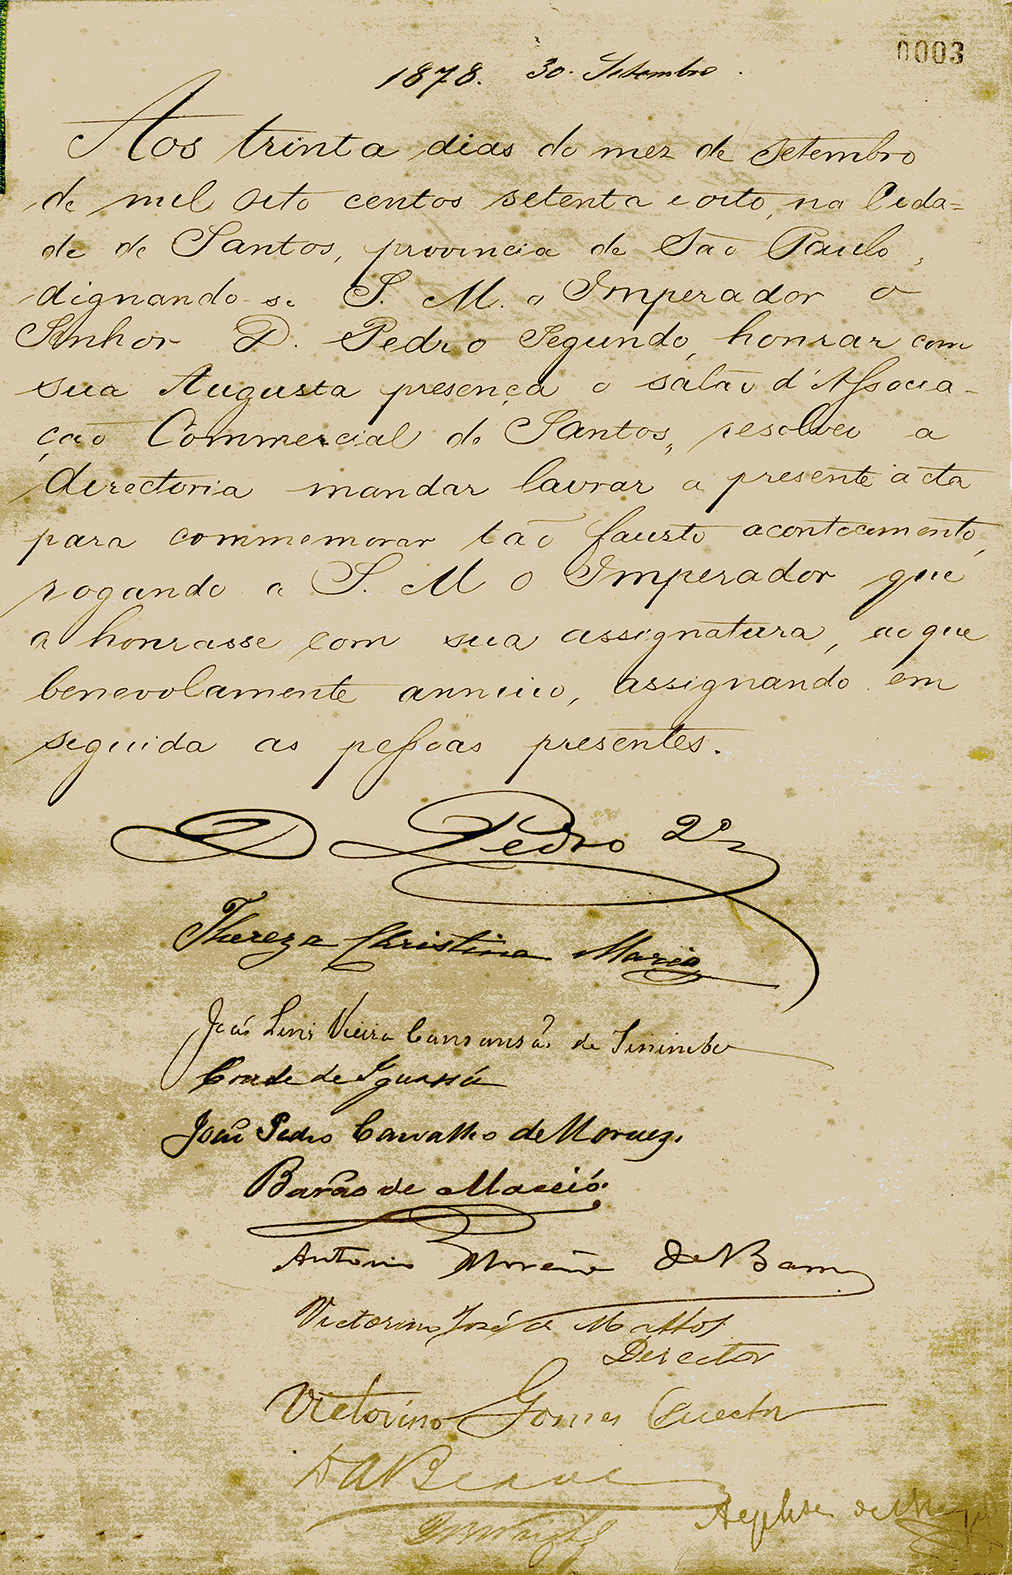 0003
1878. 30. Setembro.
Aos trinta dias do mez de Setembro
de mil oito centos setenta e oito, na Cida-
de de Santos, provincia de São Paulo,
dignando-se S. M. o Imperador o
Senhor D. Pedro Segundo, honrar com
sua Augusta presença o salão d'Associa-
ção Commercial de Santos, resolveo a
directoria mandar lavrar a presente acta
para commemorar tão fausto acontecimento,
rogando a S. M. O Imperador que
a honrasse com sua assignatura, ao que
benevolamente annuio, assignando em
seguida as pessoas presentes.
D Pedro 2º
Thereza Christina Maria
João Lins Vieira Cansansão de Sinimbu
Conde de Iguassú
João Pedro Carvalho de Moraes.
Barão de Maceió.
Antonio de
Victorino José de Mattos
Director
Victorino Gomes Director